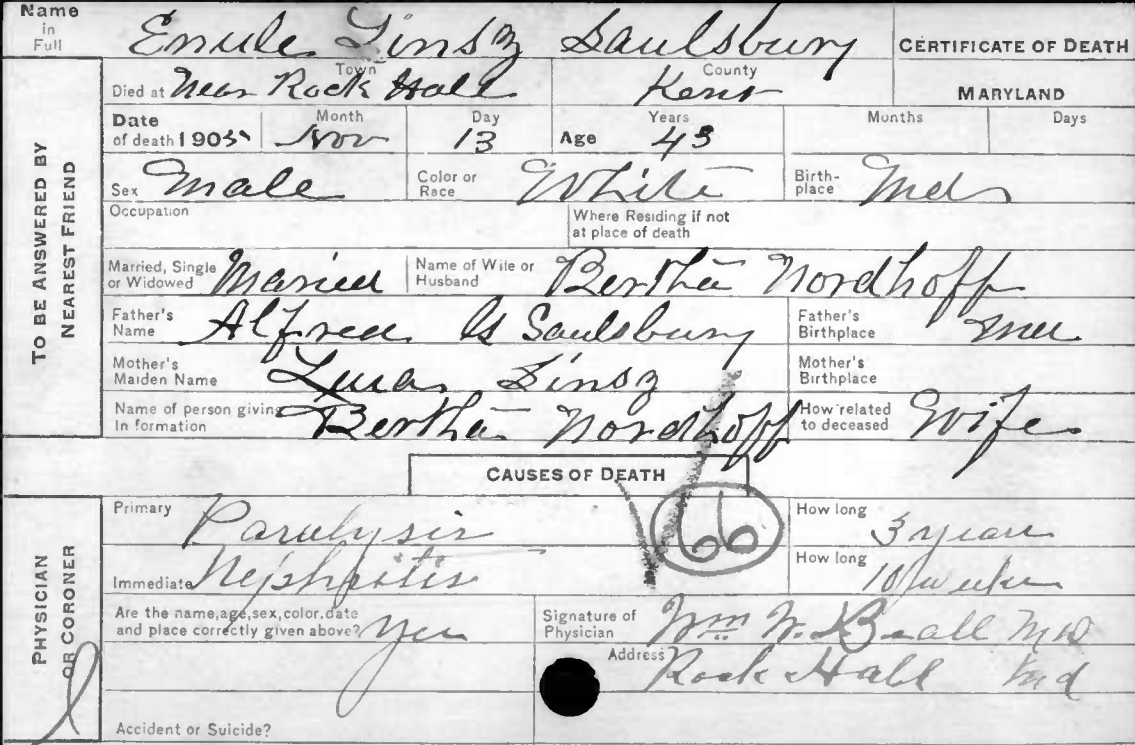 Name in Full Enule Linsz Saulsbury CERTIFICATE OF DEATH
TO BE ANSWERED BY NEAREST FRIEND
Died at Near Rock Hall Town Kent County MARYLAND
Date of death 1905 Month Nov Day 13 Age Years 43 Months Days
Sex Male Color or Race White Birthplace Md
Occupation Where Residing if not at place of death
Married, Single or Widowed Married Name of Wife or Husband Bertha Nordhoff
Father's Name Alfred Saulsbury Father's Birthplace Md
Mother's Maiden Name Linsz Mother's Birthplace
Name of person giving In formation Bertha Nordhoff How related to deceased Wife
CAUSES OF DEATH
PHYSICIAN OR CORONER
Primary Paralysis 66 How long 3 years
Immediate Nephritis How long 10 weeks
Are the name,age,sex,color.date and place correctly given above? Yes Signature of Physician Wm W. Beall MD
Address Rock Hall Md
Accident or Suicide?